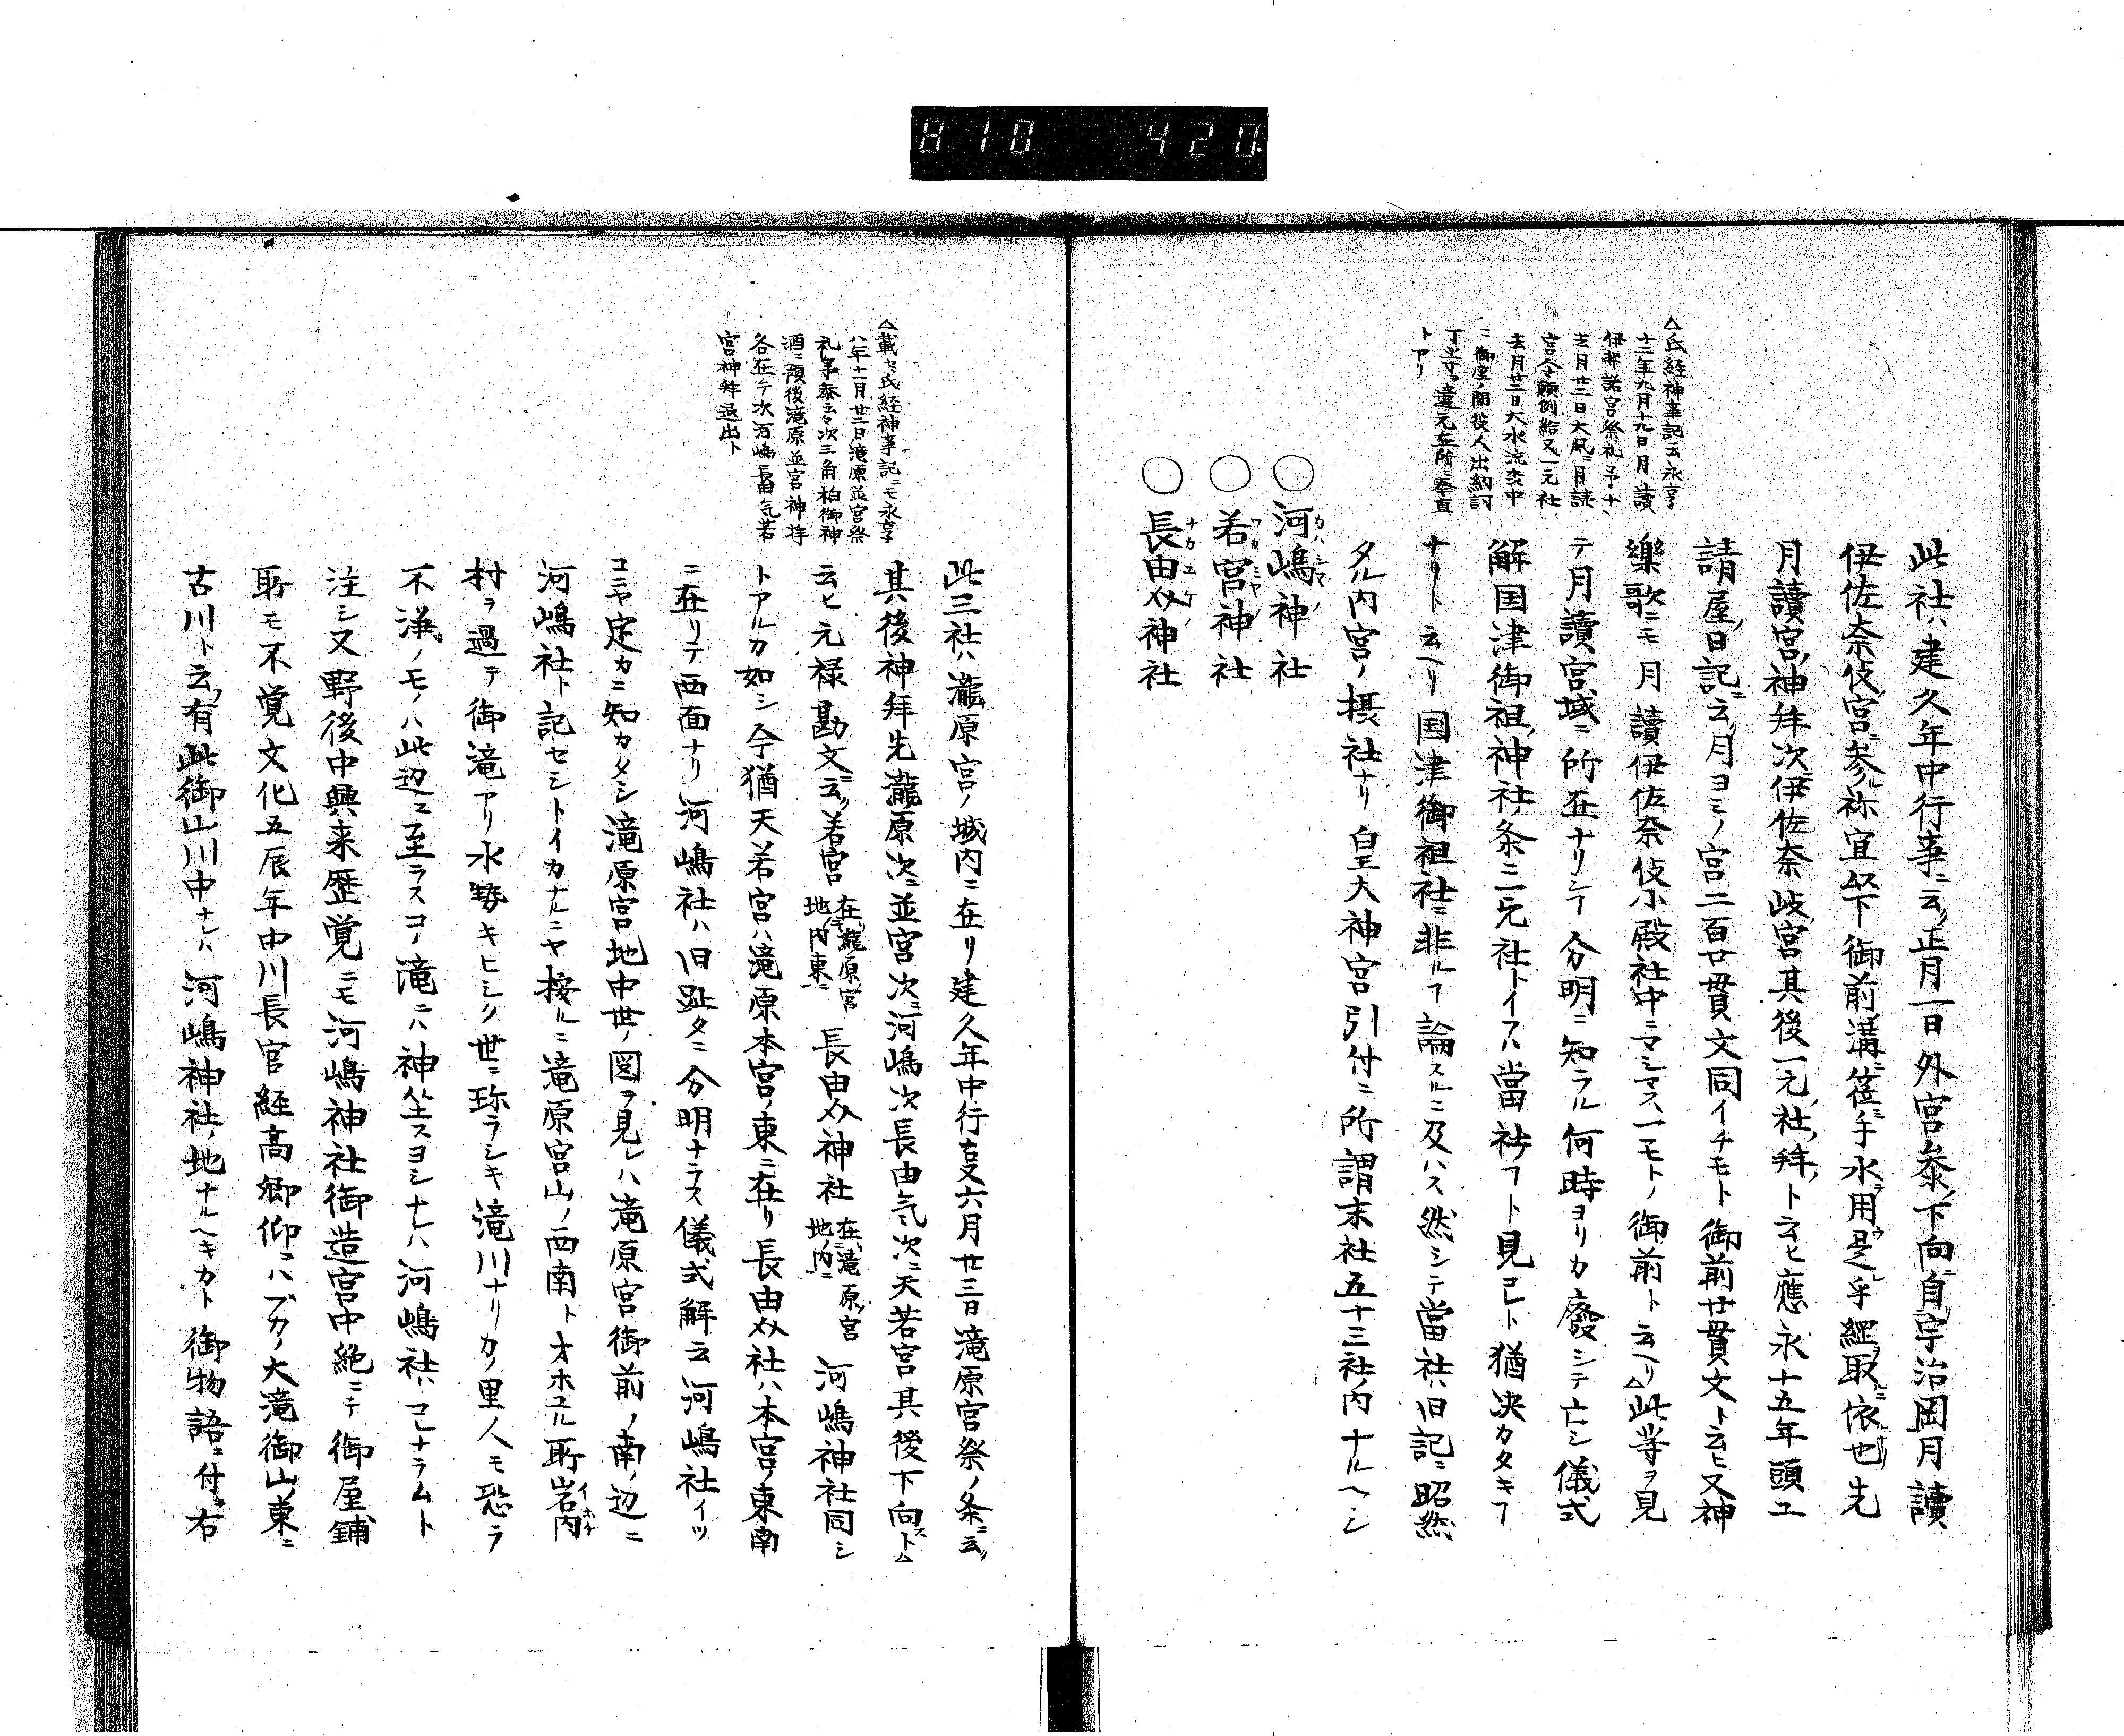 810 420.
△氏経神事記云永享
十二年九月十九日月讀
伊弉諾宮祭礼予十
去月廿二日大風ニ月読
宮令顛倒給又一元社
去月廿三日大水流失中
ニ御座ノ間役人出納討
遣元在所ニ奉直
トアリ
此社ハ建久年中行事ニ云ク正月一日外宮参ノ下向ニ自宇治岡月讀
伊佐奈伎宮ニ参ル祢宜祭下御前溝ニ莅ミ手水用ウ是レ乎經取ニ依也先
月讀宮ノ神拜次伊佐奈岐宮其後一元ノ社ノ拜ト云ヒ應永十五年頭工
請屋ノ日記ニ云ク月ヨミノ宮二百廿貫文同イチモト御前廿貫文ト云ヒ又神
樂歌ニモ月讀伊佐奈伎小殿社中ニマシマス一モトノ御前ト云ヘリ△此等ヲ見
テ月讀宮域ニ所在ナリシヿ分明ニ知ラル何時ヨリカ廢シテ亡シ儀式
解国津御祖神社ノ条ニ一元社トイフハ當社ノヿト見コレト猶决カタキヿ
ナリト云ヘリ国津御祖社ニ非ルヿ論スルニ及ハス然シテ當社ハ旧記ニ昭然
タル内宮ノ摂社ナリ皇大神宮引付ニ所謂末社五十三社ノ内ナルヘシ
○河嶋神社
カハシマノ
○若宮神社
ワカミヤノ
○長由介神社
ナカユケノ
△載セ氏経神事記ニモ永享
八年十一月廿二日滝原並宮祭
礼予参云々次三角柏御神
酒ニ預後滝原並宮神拝
各在テ次河嶋長由気若
宮神拜退出ト
此三社ハ瀧原宮ノ域内ニ在リ建久年中行叓六月廿三日滝原宮祭ノ条ニ云ク
其後神拜先瀧原次ニ並宮次ニ河嶋次長由気次ニ天若宮其後下向スト△
云ヒ元禄勘文ニ云ク若宮在リ瀧原ノ宮地ノ内東ニ長由介神社在ニ滝原ノ宮地ノ内ニ河嶋神社同シ
トアルカ如シ今猶天若宮ハ滝原本宮ノ東ニ在リ長由介社ハ本宮ノ東南
ニ在リテ西面ナリ河嶋社ハ旧趾タニ分明ナラス儀式解云河嶋社イツ
コニヤ定カニ知カタシ滝原宮地中世ノ図ヲ見レハ滝原宮御前ノ南ノ辺ニ
河嶋社ト記セシトイカナルニヤ按ルニ滝原宮山ノ西南トオホユル所岩内
イホチ
村ヲ過テ御滝アリ水勢キヒシク世ニ珎ラシキ滝川ナリカノ里人モ恐ラ
不浄ノモノハ此辺エ至ラスコノ滝ニハ神坐スヨシナレハ河嶋社ハコレナラムト
注シ又野後中興来歴覚ニモ河嶋神社御造宮中絶ニテ御屋鋪
所モ不覚文化五辰年中川長官経高卿仰ニハブカノ大滝御山ノ東ニ
古川ト云フ有此御山川中ナレハ河嶋神社ノ地ナルヘキカト御物語ニ付キ右